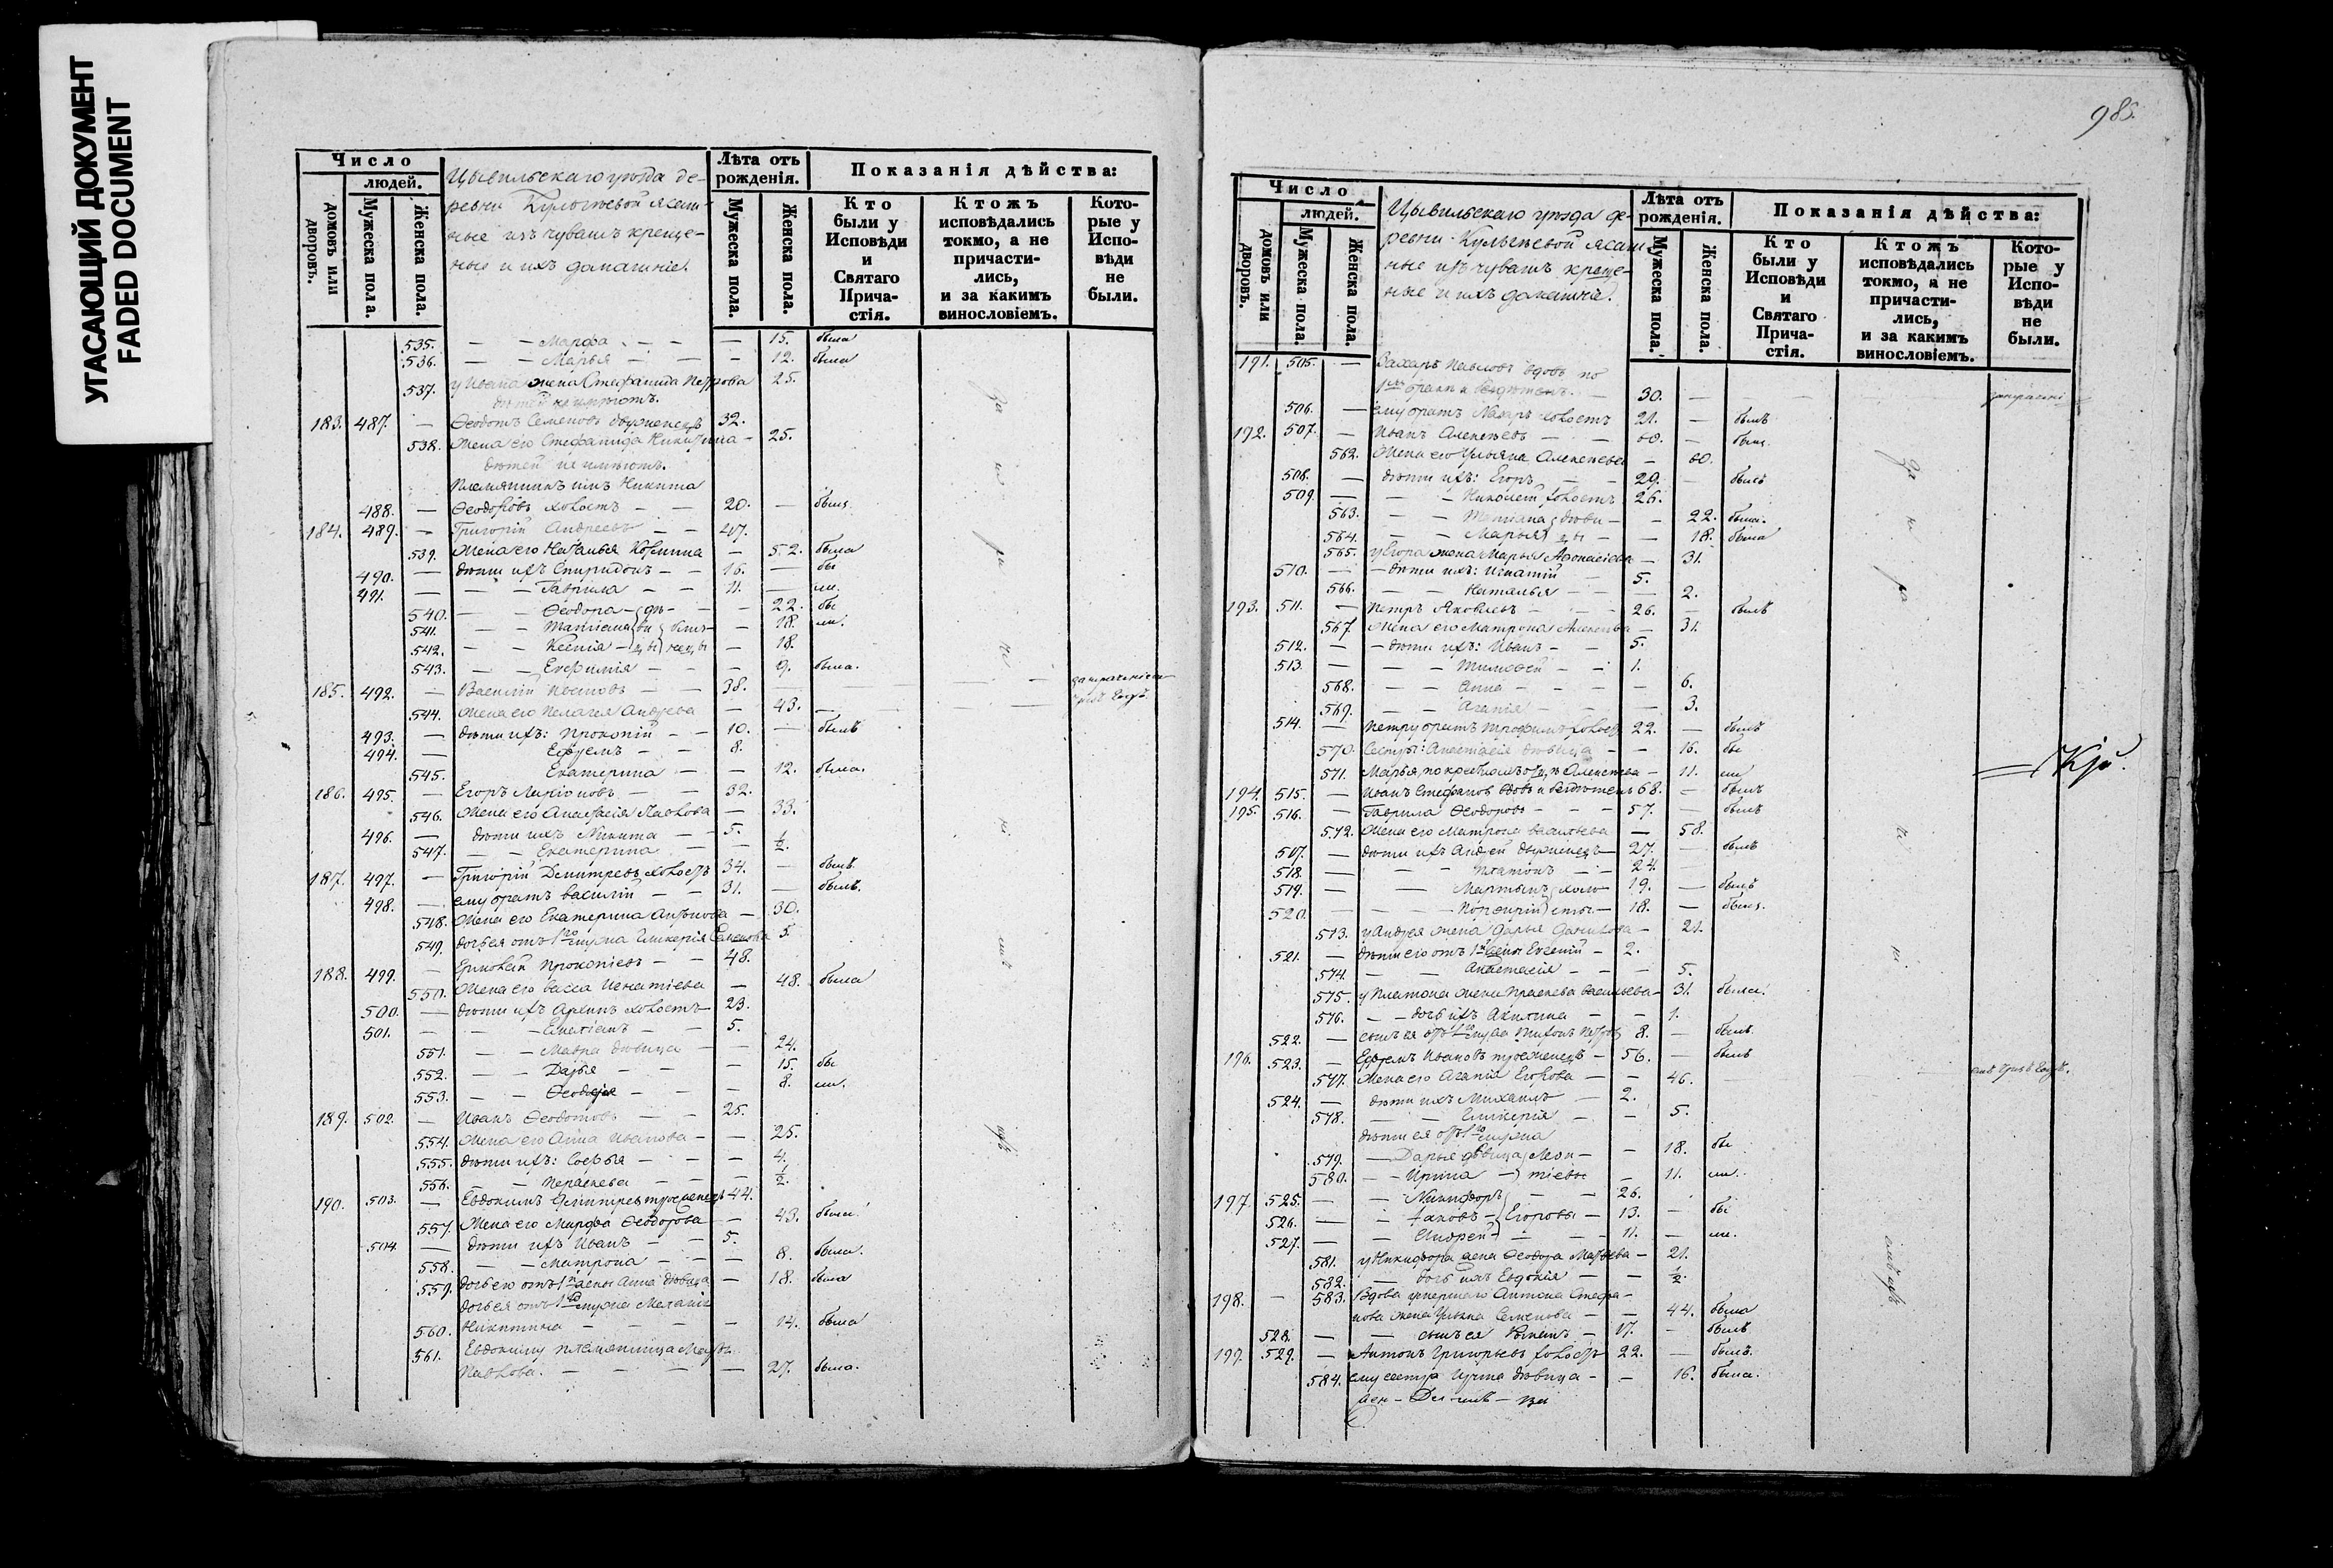 УГАСАЮЩИЙ ДОКУМЕНТ
FADED DOCUMENT
Число
людей.
домовъ или дворовъ.
Мужеска пола.
Женска пола.
Цывильскаго уѣзда де-
ревни Кулогѣевой ясаш-
ные изъ чувашъ креще-
ные и ихъ домашніе.
Лѣта отъ рожденія.
Мужеска пола.
Женска пола.
Показанія дѣйства:
Кто были у Исповѣди и Святаго Прича-стія.
Ктожъ исповѣдались токмо, а не причасти-лись, и за какимъ винословіемъ.
Кото-рые у Испо-вѣди не были.
535. — — Марфа — — — 15. была
536. — — Марья — — — 12. была
537. у Ивана жена Стефанида Петрова 25.
дѣтей не имѣютъ.
183. 487. — Ѳеодотъ Семеновъ двуженецъ 32.
538. Жена его Стефанида Никитина — 25.
дѣтей не имѣютъ.
Племянникъ имъ Никита
488. — Ѳеодоровъ холостъ — — 20. — былъ
184. 489. — Григорій Андреевъ — — 47.
539. Жена его Наталья Козмина — 52. была
490. — дѣти ихъ Спиридонъ — — 16. — бы
491. — — — Гаврила — — 11. — ли.
540. — — Ѳеодора — дѣ- — 22. бы
541. — — Татіана ви — 18. ли.
542. — — Ксенія — цы — 18.
543. — — Евфимія — — — 9. была.
185. 492. — Василій Ивановъ — — 38. —
544. Жена его Пелагея Андреева — 43. —
493. — дѣти ихъ: Прокопій — — 10. — былъ
494. — Ефремъ — — 8.
545. Екатерина — — 12. была.
186. 495. — Егоръ Ларіоновъ — — 32.
546. Жена его Анастасія Павлова — 33.
496. — дѣти ихъ Никита — — 5.
547. — — Екатерина — — ½.
187. 497. — Григорій Дмитревъ холостъ 34. — былъ.
498. — ему братъ Василій — — 31. — былъ.
548. Жена его Екатерина — 30.
549. дочь ея отъ 1го мужа Гликерія Семенова 5.
188. 499. — Прокопіевъ — — 48.
550. Жена его Васса Игнатіева — 48. была
500. — дѣти ихъ Архипъ холостъ 23.
501. — — — — — 5.
551. — — Мавра дѣвица — — 24.
552. — — Дарья — — — 15. бы
553. — — Ѳеодора — — 8. ли.
189. 502. — Иванъ Ѳеодотовъ — — 25.
554. Жена его Анна Иванова — — 25.
555. дѣти ихъ: Софья — — — 4.
556. — — Параскева — — — ½.
190. 503. — Евдокимъ Дмитревъ троеженецъ 44.
557. Жена его Марфа Ѳеодорова — 43. была.
504. — дѣти ихъ Иванъ — — 5.
558. — — Матрона — — — 8. была.
559. дочь его отъ 1й жены Анна дѣвица — 18. была
дочь ея отъ 1го мужа Меланія
560. Никитина — — — — 14. была
561. Евдокиму племянница
Павлова. — — — — 27. была.
985.
Число
людей.
домовъ или дворовъ.
Мужеска пола.
Женска пола.
Цывильскаго уѣзда де-
ревни Кулгѣевой ясаш-
ные изъ чувашъ креще-
ные и ихъ домашніе.
Лѣта отъ рожденія.
Мужеска пола.
Женска пола.
Показанія дѣйства:
Кто были у Исповѣди и Святаго Прича-стія.
Ктожъ исповѣдались токмо, а не причасти-лись, и за какимъ винословіемъ.
Кото-рые у Испо-вѣди не были.
191. 505. — Захаръ Павловъ вдовъ по
1мъ бракѣ и бездѣтенъ. — 30. —
506. — ему братъ Назаръ холостъ 21. — былъ
192. 507. — Иванъ Алексѣевъ — — 60. — былъ.
562. Жена его Ульяна Алексѣева — 60.
508. — дѣти ихъ: Егоръ — — 29. — былъ
509. — — — Николай холостъ 26.
563. — — Татіана дѣви- — 22. была.
564. — — Марья цы — — 18. была
565. у Егора жена Марья Аѳонасіева — 31.
510. — — дѣти ихъ: Игнатій — 5.
566. — — Наталья — — — 2.
193. 511. — Петръ Яковлевъ — — — 26. — былъ
567. Жена его Матрона Алексѣева — 31.
512. — — дѣти ихъ: Иванъ — — 5.
513. — — — Тимоѳей — — 1.
568. — — Анна — — — — 6.
569. — — Агапія — — — 3.
514. — Петру братъ Трофимъ холостъ 22. — былъ
570. Сестры: Анастасія дѣвица — — 16. бы
571. Марья, по крестномъ отцѣ Алексѣева — 11. ли
194. 515. — Иванъ Стефановъ вдовъ и бездѣтенъ 68. — былъ
195. 516. — Гаврила Ѳеодоровъ — — — 57. — былъ
572. Жена его Матрона Васильева — 58.
517. — дѣти ихъ Андрей двуженецъ — 27. — былъ
518. — — — Платонъ — — 24.
519. — — Мартынъ холо- 19. — былъ
520. — — — Порфирій сты — 18. — былъ.
573. у Андрея жена Дарья Данилова — 21.
521. — дѣти его отъ 1й жены Евгеній — 2.
574. — — Анастасія — — — 5.
575. у Платона жена Праскева Васильева — 31. была.
576. — — дочь ихъ Акилина — — 1.
522. — сынъ ея отъ 1го мужа Петровъ 8. — былъ
196. 523. — Ефремъ Ивановъ троеженецъ — 56. — былъ
577. Жена его Агапія Егорова — — 46.
524. — дѣти ихъ Михаилъ — 2.
578. — — Гликерія — — 5.
дѣти ея отъ 1го мужа
579. — Дарья дѣвица — — 18. бы
580. — — Ирина — — 11. ли.
197. 525. — — Никифоръ — — 26.
526. — — Яковъ — Егоровы — 13. — бы
527. — — Андрей — — — 11. — ли.
581. у Никифора жена Ѳеодора Матвѣева — 21.
582. — дочь ихъ Евдокія — — ½.
198. — 583. Вдова умершаго Антона Стефа-
нова жена Ульяна Семенова — — 44. была
528. — — сынъ ея — 17. — былъ
199. 529. — Антонъ Григорьевъ холостъ 22. — былъ.
584. ему сестра Ирина дѣвица — — 16. была.